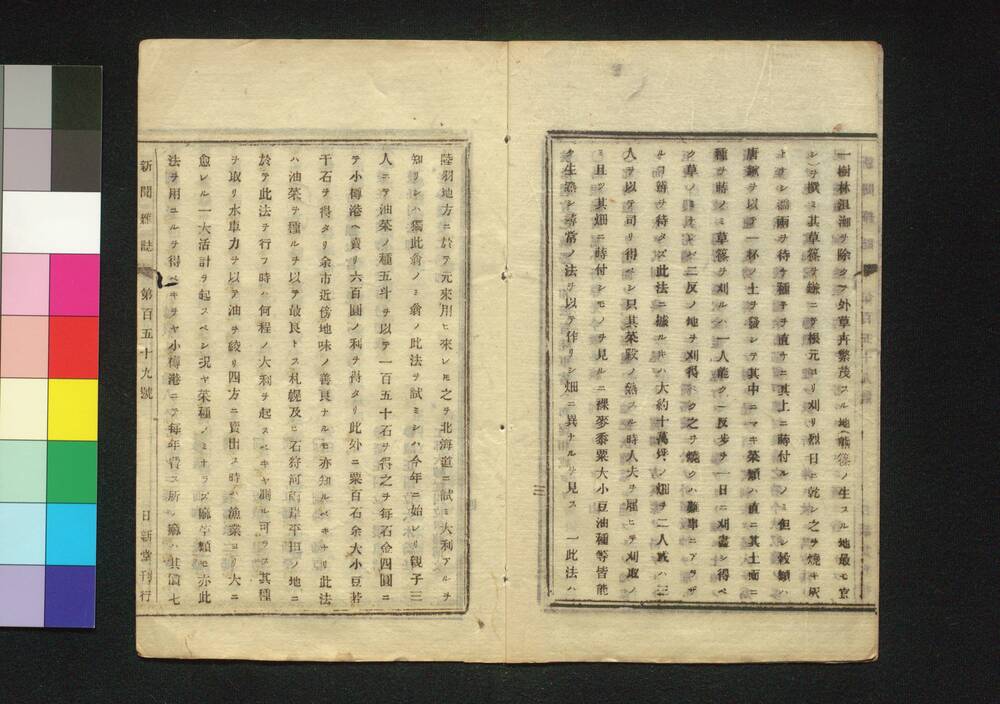 一樹林沮洳ヲ除クノ外草卉繁茂スル地(熊篠ノ生スル地最モ宜
シ)ヲ撰ミ其草篠ヲ鎌ニテ根元ヨリ刈リ烈日ニ乾シ之ヲ燒キ灰
トナシ雨ヲ待チ種子ヲ直チニ其上ニ蒔付ルノミ但シ穀類ハ
唐鍬ヲ以テ一杯ノ土ヲ發シテ其中ニマキ菜類ハ直ニ其土面ニ
種ヲ蒔ノミ草篠ヲ刈ルハ一人能ク一反歩ヲ一日ニ刈盡シ得ベ
ク草ノミナレバ二反ノ地ヲ刈得ベク之ヲ燒クハ難事ニアラザ
ルヿ辨ヲ待タズ此法ニ據ルキハ大約十萬坪ノ畑ヲ二人或ハ三
人ヲ以テ司リ得ベシ只其菜穀ノ熟スル時人夫ヲ雇ヒテ刈取ノ
ミ且ツ其畑ニ時付シモノヲ見ルニ裸麥黍粟大小豆油種等皆能
ク生熟シ尋常ノ法ヲ以テ作リシ畑ニ異ナルヿヲ見ス　一此法ハ
三
陸羽地方ニ於テ元來用ヒ來レ𪜈之ヲ北海道ニ試ミ大利アルヲ
知リシハ獨此翁ノミ翁ノ此法ヲ試ミシハ今年ニ始レリ親子三
人ニテ油菜ノ種五斗ヲ以テ一百五十石ヲ得之ヲ毎石金四圓ニ
テ小樽港ヘ賣リ六百圓ノ利ヲ得タリ此外ニ粟百石余大小豆若
干石ヲ得タリ余市近傍地味ノ善良ナルモ亦知ルベキナリ此法
ハ油菜ヲ種ルヲ以テ最良トス札幌及ヒ石狩河兩岸平坦ノ地ニ
於テ此法ヲ行フ時ハ何程ノ大利ヲ起スベキヤ測ル可ラス其種
ヲ取リ水車力ヲ以テ油ヲ絞リ四方ニ賣出ス時ハ漁業ヨリ大ニ
愈レル一大活計ヲ起スベシ況ヤ菜種ノミナラズ麻苧類モ亦此
法ヲ用ユルヲ得ベキヲヤ小樽港ニテ毎年費ス所ノ麻ハ其價七
新聞雜誌　第百五十九號　日新堂刊行